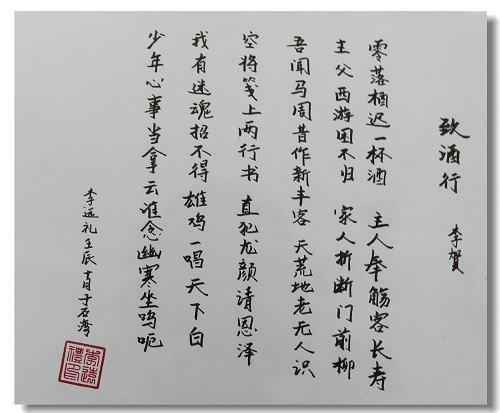 致酒行
李賀
零落栖迟一杯酒 主人奉觞客长寿
主父西游困不归 家人折断门前柳
吾闻马周昔作新丰客 天荒地老无人识
空将笺上两行书 直犯龙颜请恩泽
我有迷魂招不得 雄鸡一唱天下白
少年心事当拿云 谁念幽寒坐呜呃
李远礼壬辰十月于石湾
李遠禮印